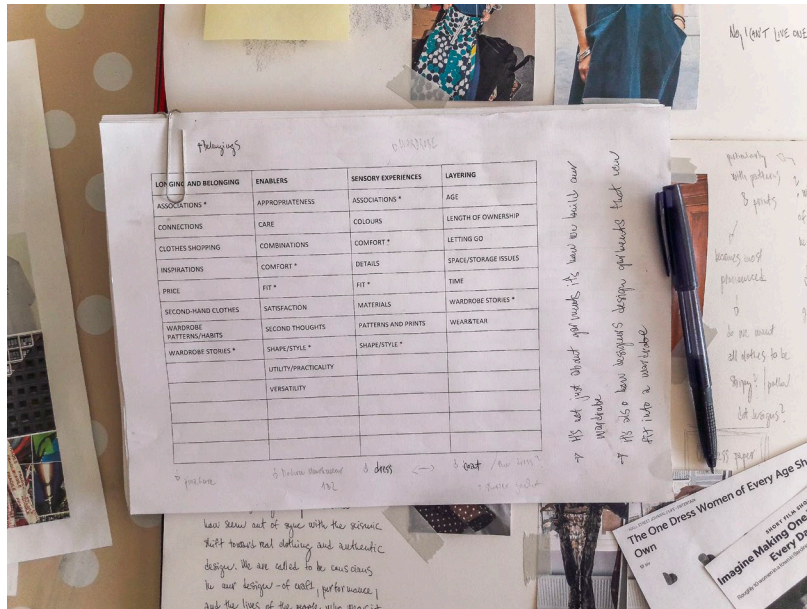 No, I CAN'T LIVE ONE
+belongings
LONGING AND BELONGING ENABLERS SENSORY EXPERIENCES LAYERING
ASSOCIATIONS * APPROPRIATENESS ASSOCIATIONS * AGE
CONNECTIONS CARE COLOURS LENGTH OF OWNERSHIP
CLOTHES SHOPPING COMBINATIONS COMFORT * LETTING GO
INSPIRATIONS COMFORT * DETAILS SPACE/STORAGE ISSUES
PRICE FIT * FIT * TIME
SECOND-HAND CLOTHES SATISFACTION MATERIALS WARDROBE STORIES *
WARDROBE PATTERNS/HABITS SECOND THOUGHTS PATTERNS AND PRINTS WEAR&TEAR
WARDROBE STORIES * SHAPE/STYLE * SHAPE/STYLE *
UTILITY/PRACTICALITY
VERSATILITY
dress <--> coat
→ It's not just about garments it's how we build our
wardrobe
→ It's also how designers design garments that can
fit into a wardrobe
particularly
with patterns
& prints
becomes most
pronounced
do we want
all clothes to be
how seem out of sync with the seismic
shift toward real clothing and authentic
design. We are called to be conscious
in our design - of craft, performance,
and the lives of the people who wear it
The One Dress Women of Every Age Sh
Own
SHORT FILM SHO
Imagine Making One
Every Da